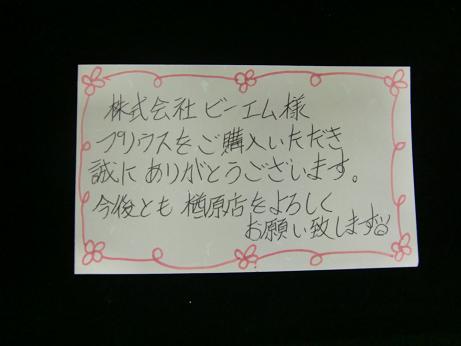 株式会社ビーエム様
プリウスをご購入いただき
誠にありがとうございます。
今後とも 楢原店をよろしく
お願い致します